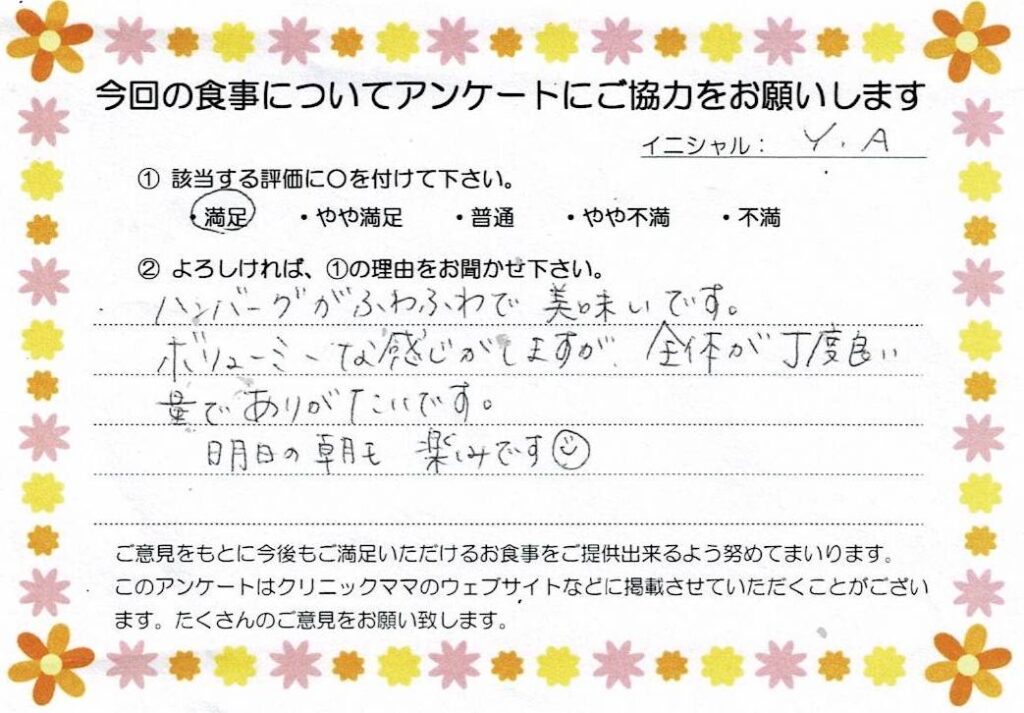 今回の食事についてアンケートにご協力をお願いします
イニシャル： Y.A
① 該当する評価に〇を付けて下さい。
・満足 ・やや満足 ・普通 ・やや不満 ・不満
② よろしければ、①の理由をお聞かせ下さい。
ハンバーグがふわふわで 美味いです。
ボリューミーな感じがしますが、全体が丁度良い
量でありがたいです。
明日の朝も 楽しみです☺
ご意見をもとに今後もご満足いただけるお食事をご提供出来るよう努めてまいります。
このアンケートはクリニックママのウェブサイトなどに掲載させていただくことがござい
ます。たくさんのご意見をお願い致します。